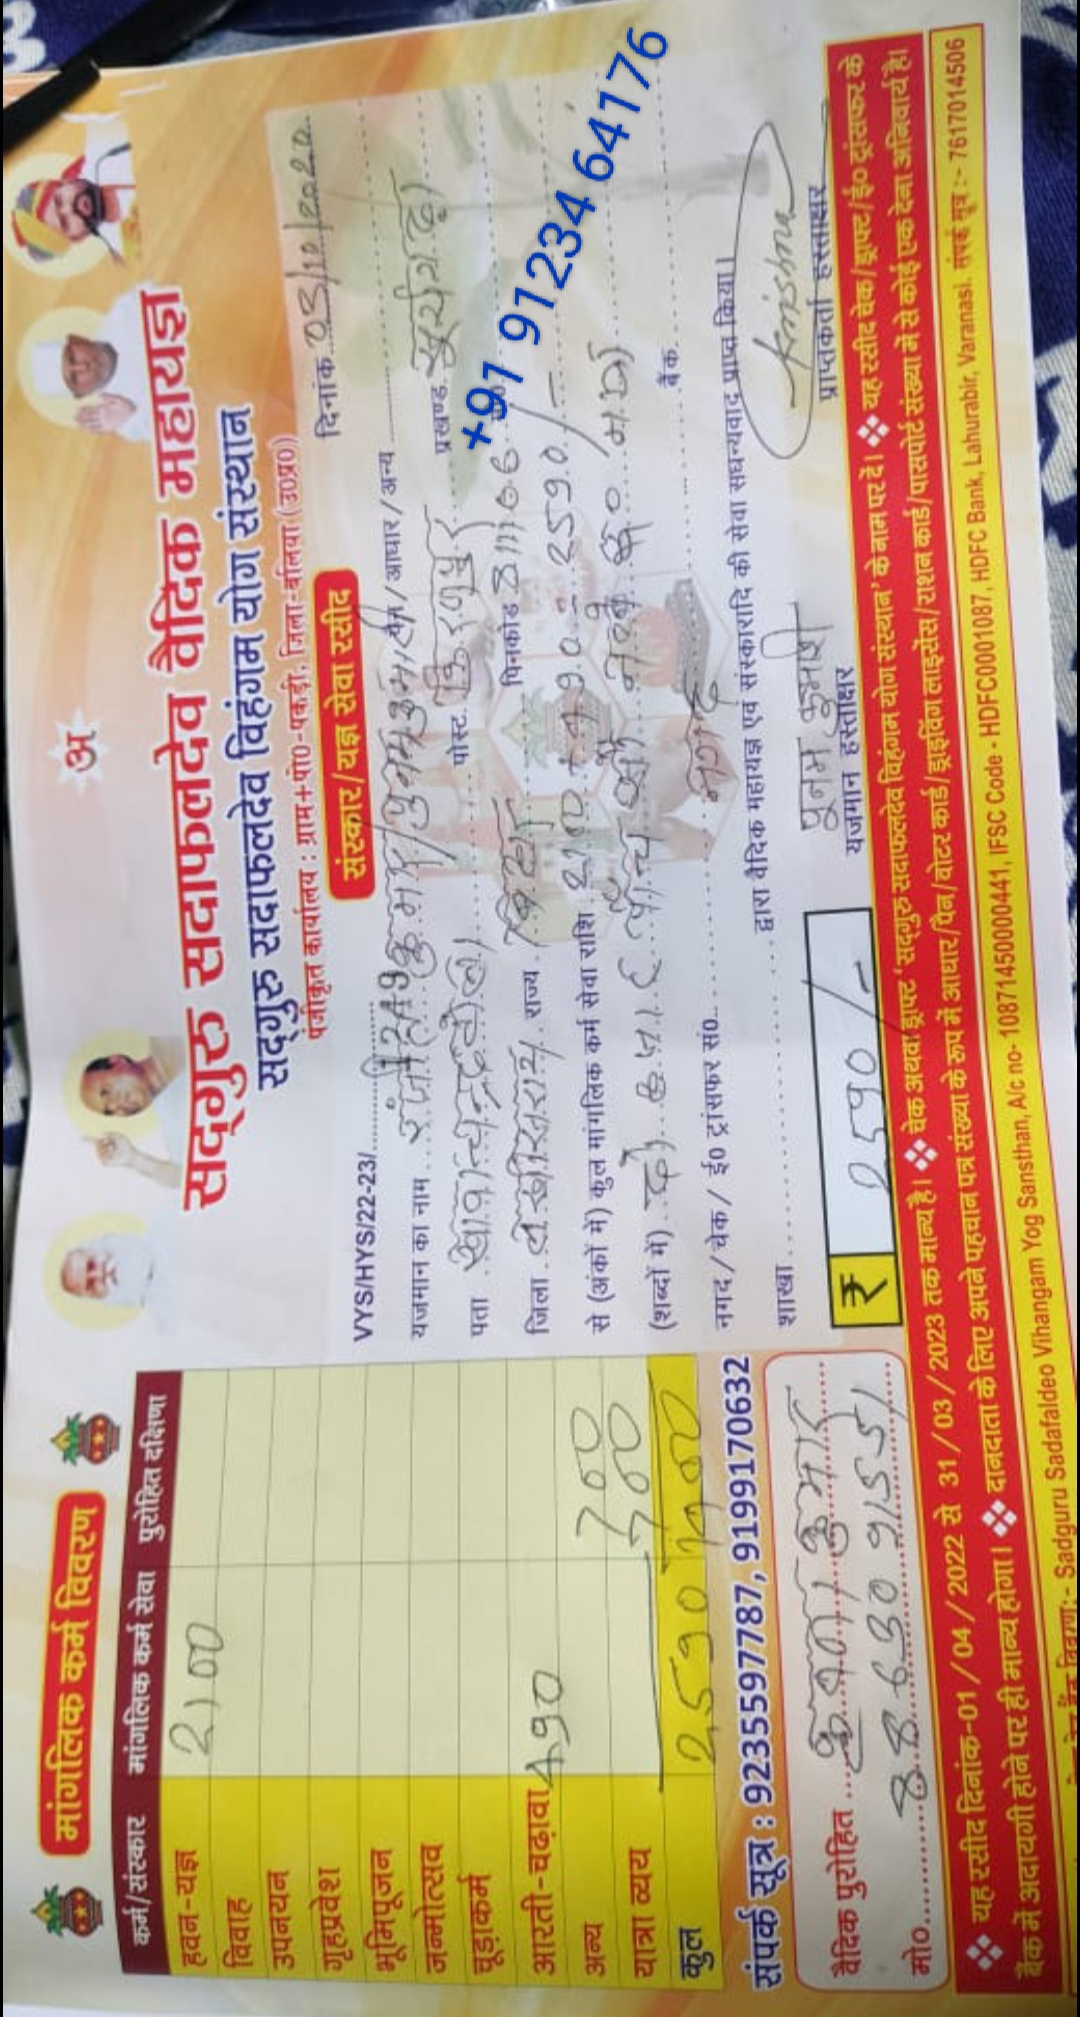 मांगलिक कर्म विवरण
कर्म/संस्कार मांगलिक कर्म सेवा पुरोहित दक्षिणा
हवन-यज्ञ 2100
विवाह
उपनयन
गृहप्रवेश
भूमिपूजन
जन्मोत्सव
चूड़ाकर्म
आरती-चढ़ावा 490
अन्य 700
यात्रा व्यय 700
कुल 2590 1400
संपर्क सूत्र : 9235597787, 9199170632
वैदिक पुरोहित कुमार
मो0 8863091551
अ
सद्गुरु सदाफलदेव वैदिक महायज्ञ
सद्गुरु सदाफलदेव विहंगम योग संस्थान
पंजीकृत कार्यालय : ग्राम+पो0-पकड़ी, जिला-बलिया (उ0प्र0)
संस्कार/यज्ञ सेवा रसीद
दिनांक 03/10/2020
VYS/HYS/22-23/ 1249
यजमान का नाम रंजीत कुमार/पुनम कुमारी पैन/आधार/अन्य
पता पोस्ट किरणपुर प्रखण्ड सूर्यगढ़ा
जिला लखीसराय राज्य बिहार पिनकोड 811106
+91 91234 64176
से (अंकों में) कुल मांगलिक कर्म सेवा राशि 2100 + 490 = 2590/-
(शब्दों में) दो हजार पाँच सौ नब्बे रू0 मात्र
नगद/चेक/ ई0 ट्रांसफर सं0 नगद बैंक
शाखा द्वारा वैदिक महायज्ञ एवं संस्कारादि की सेवा सधन्यवाद प्राप्त किया।
₹ 2590/-
पूनम कुमारी
यजमान हस्ताक्षर
Krishna
प्राप्तकर्ता हस्ताक्षर
❖ यह रसीद दिनांक-01/04/2022 से 31/03/2023 तक मान्य है। ❖ चेक अथवा ड्राफ्ट 'सद्गुरु सदाफलदेव विहंगम योग संस्थान' के नाम पर दें। ❖ यह रसीद चेक/ड्राफ्ट/ई0 ट्रांसफर के
बैंक में अदायगी होने पर ही मान्य होगा। ❖ दानदाता के लिए अपने पहचान पत्र संख्या के रूप में आधार/पैन/वोटर कार्ड/ड्राइविंग लाइसेंस/राशन कार्ड/पासपोर्ट संख्या में से कोई एक देना अनिवार्य है।
बैंक विवरण:- Sadguru Sadafaldeo Vihangam Yog Sansthan, A/c no- 10871450000441, IFSC Code - HDFC0001087, HDFC Bank, Lahurabir, Varanasi. संपर्क सूत्र :- 7617014506